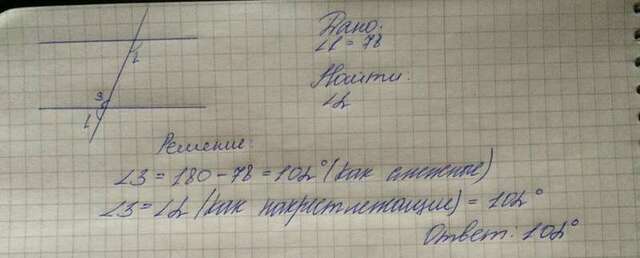 Дано:
∠1 = 78
Найти:
∠2
2
3
1
Решение:
∠3 = 180 - 78 = 102° (как смежные)
∠3 = ∠2 (как накрестлежащие) = 102°
Ответ: 102°